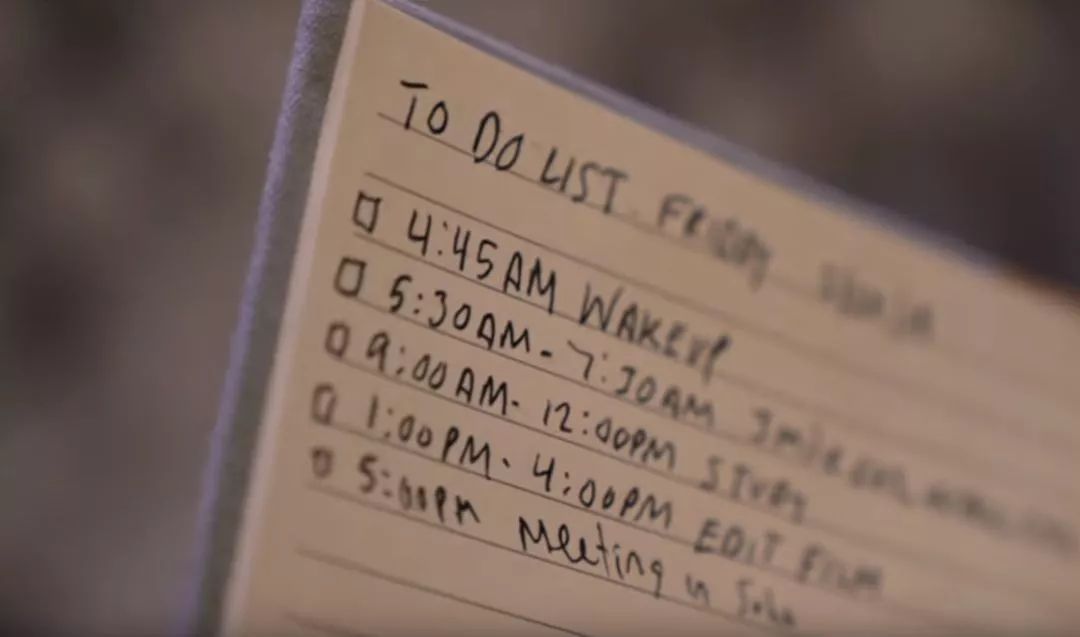 TO DO LIST FRIDAY
4:45AM WAKEUP
5:30AM - 7:30AM 3 mile run,
9:00AM - 12:00PM STUDY
1:00PM - 4:00PM EDIT FILM
5:00PM Meeting in Soho